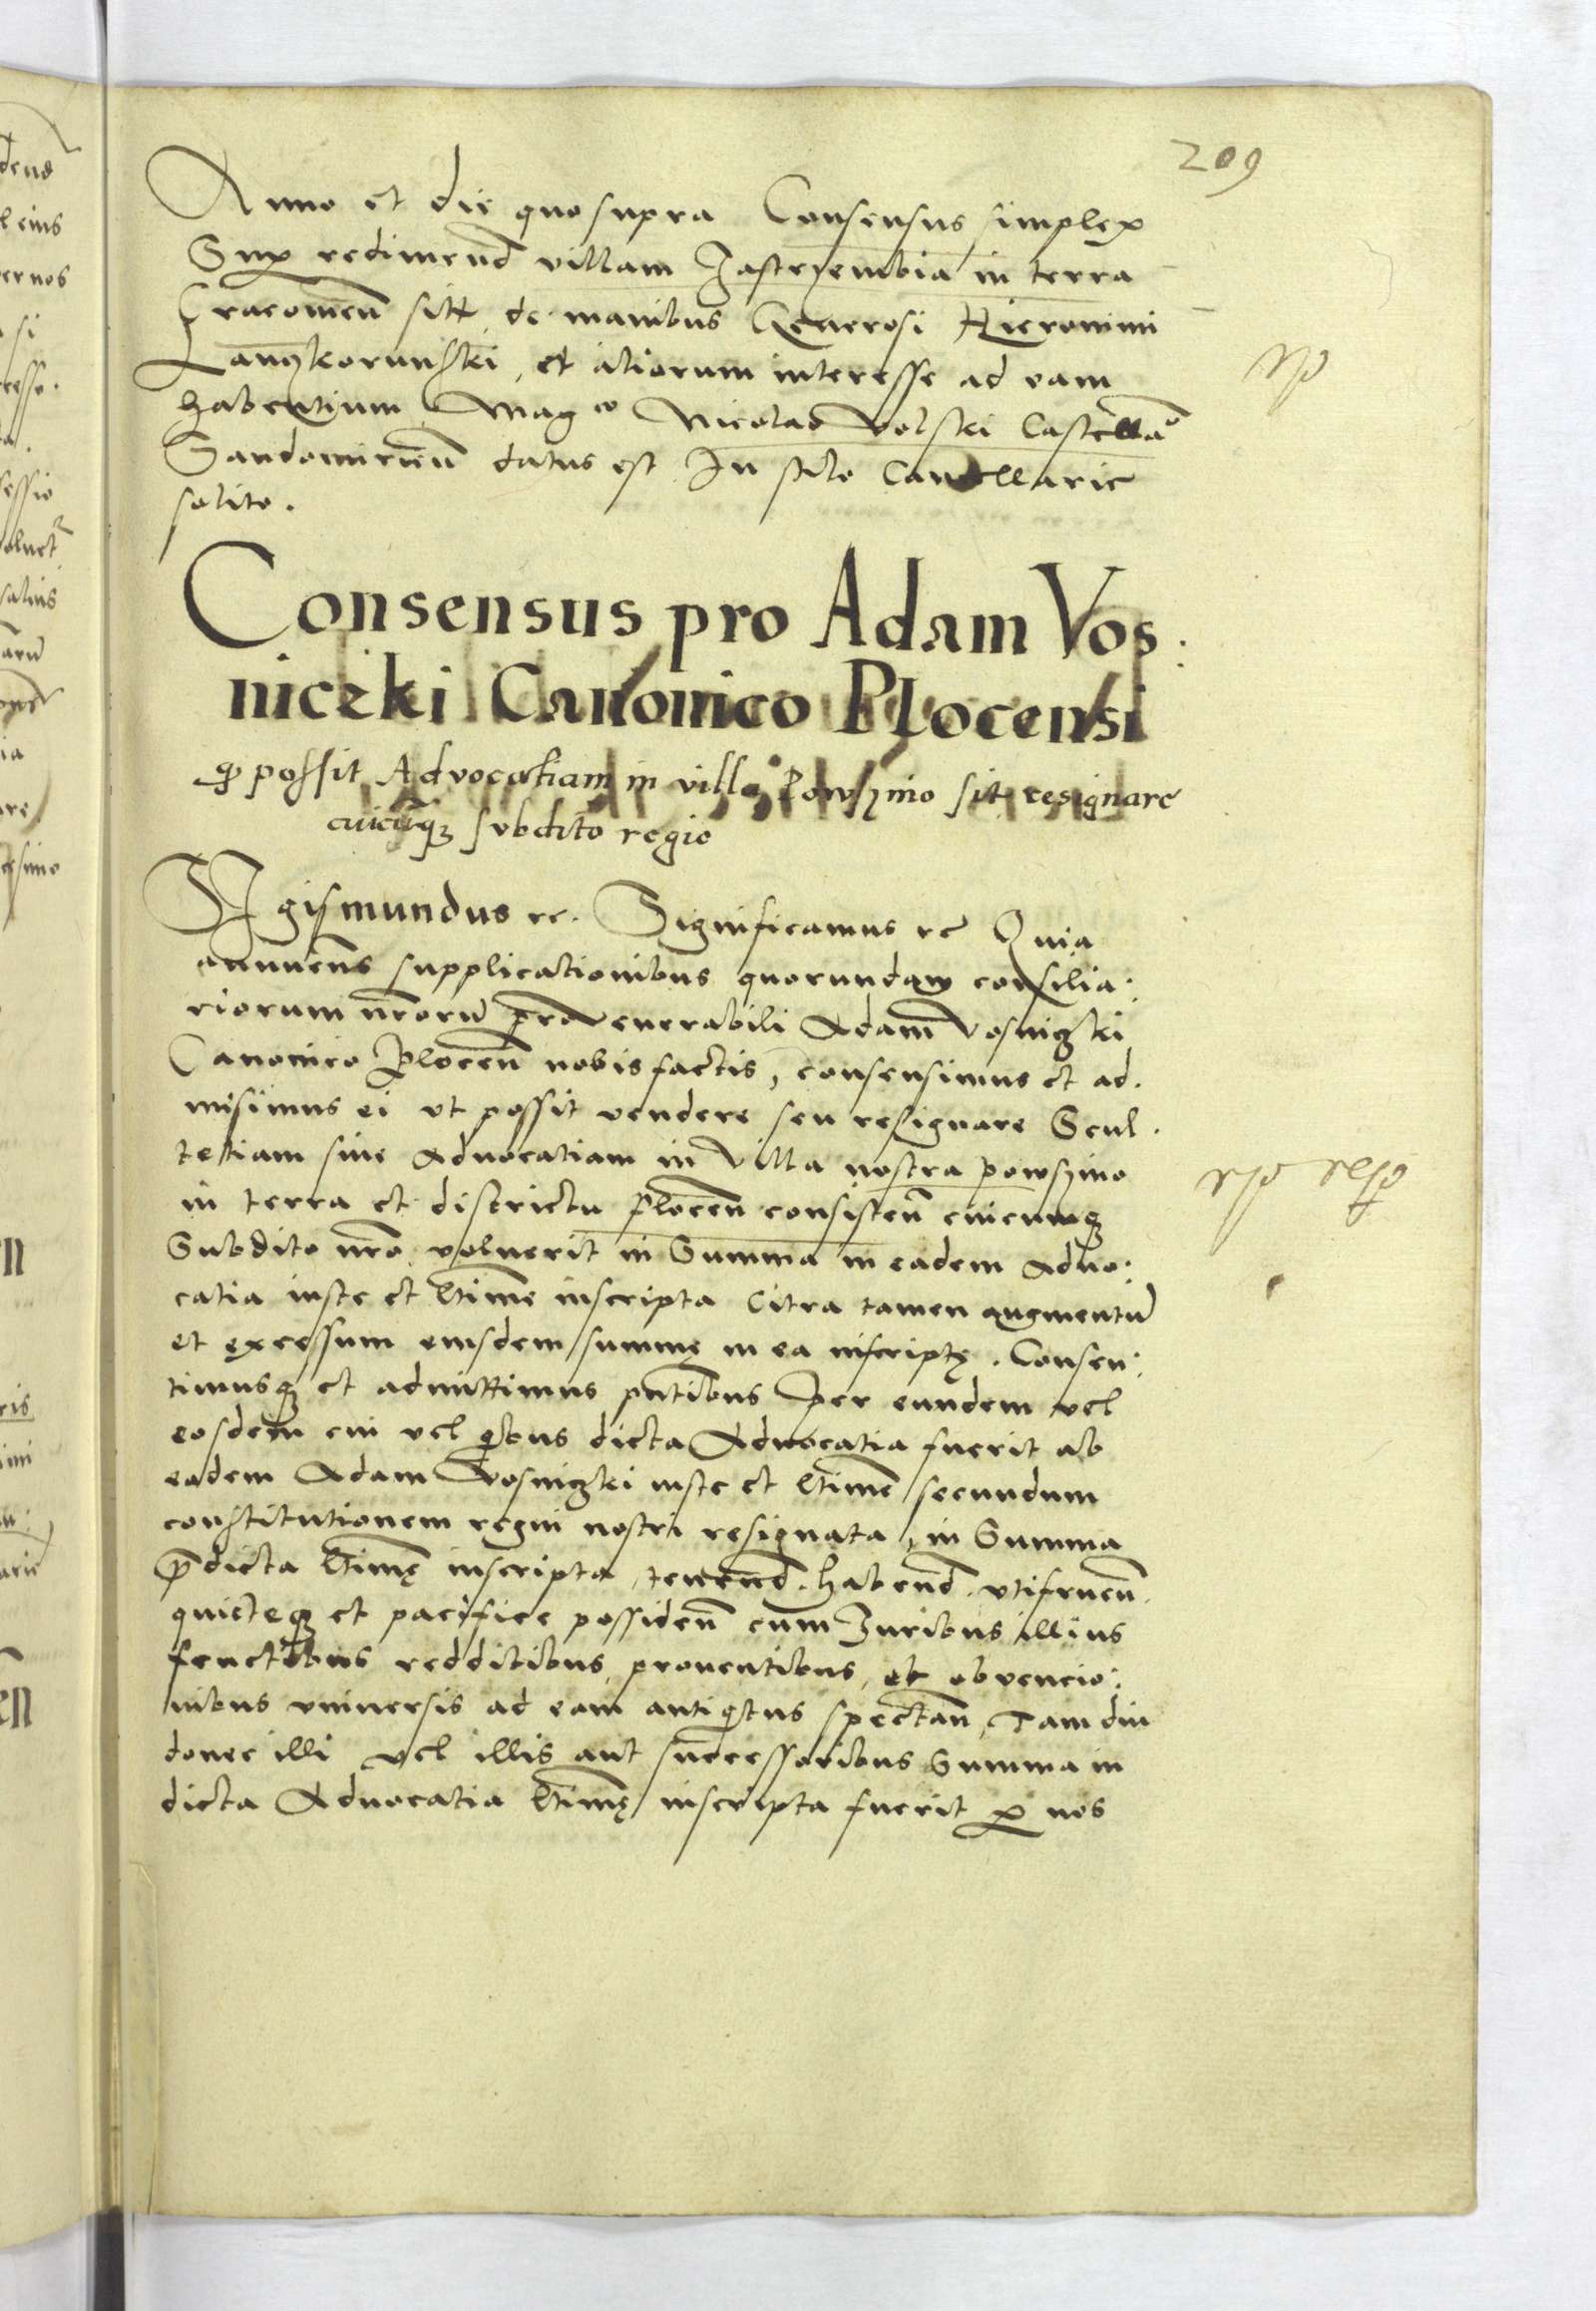 209
Anno et die quo supra Consensus simplex
Sup redimend villam Jastrzembia in terra
Cracovien sitt de manibus Generosi Hieronimi
Lanczkorunski, et aliorum interesse ad eam
habentium Magco Nicolao Volski Castellao
Sandomirien datus est In stilo Cancellarie
solito.
Consensus pro Adam Vos
niczki Canonico Plocensi
qp possit Advocatiam in villa Powszino sit resignare
cuicuq subdito regio
Sigismundus rc. Significamus rc Quia
annuens supplicationibus quorundam consilia:
riorum nrorum pro Venerabili Adam Vosniczki
Canonico Plocen nobis factis, consensimus et ad.
misimus ei ut possit vendere seu resignare Scul.
tetiam sive Advocatiam in villa nostra Powszino
in terra et districtu Plocen consisten cuicumq
Subdito nro voluerit in Summa in eadem Advo:
catia iuste et ltime inscripta Citra tamen augmentu
et excessum eiusdem summę in ea inscriptę. Consen:
timusq et admittimus pntibus Per eundem vel
eosdem cui vel qbus dicta Advocatia fuerit ab
eodem Adam Vosniczki iuste et ltime secundum
constitutionem regni nostri resignata, in Summa
pdicta ltimę inscripta, tenend. habend. utifruen.
quieteq et pacifice possiden cum Juribus illius
fructibus redditibus proventibus, et obvencio:
nibus universis ad eam antiqtus spectan, Tam diu
donec illi vel illis aut successoribus Summa in
dicta Advocatia ltimę inscripta fuerit p nos